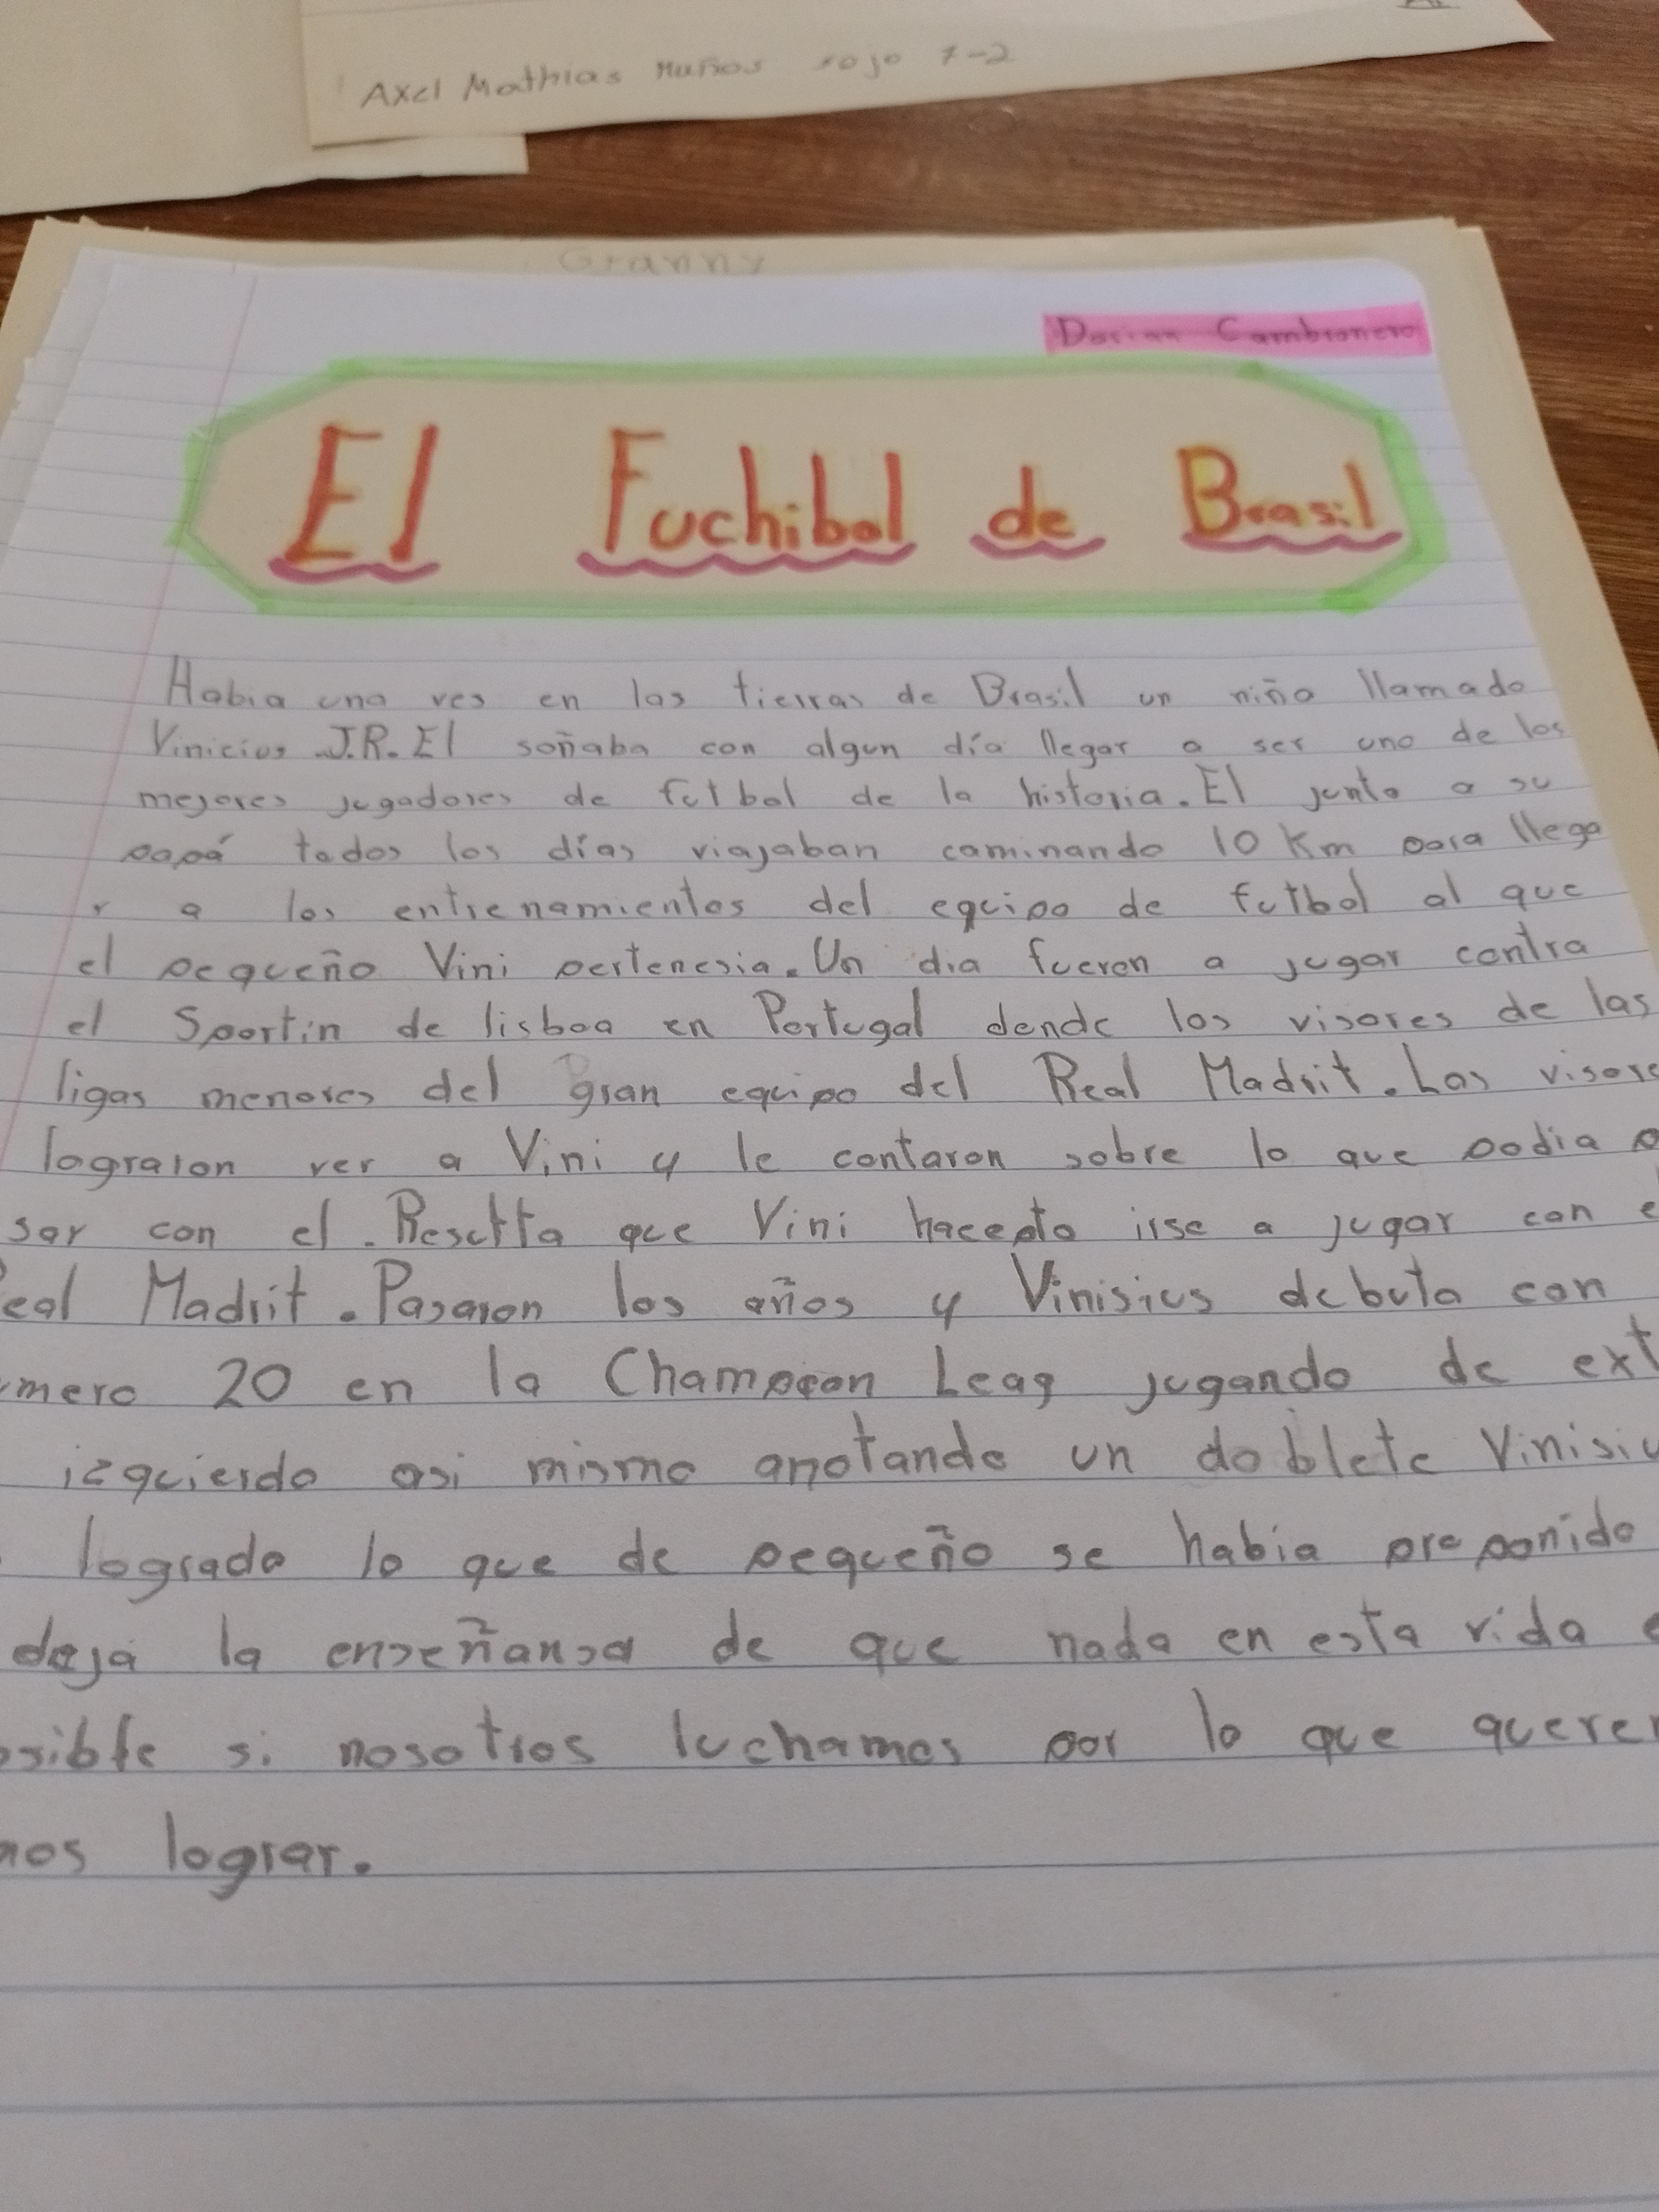 Axel Mathias Muños rojo 7-2
Granny
Dorian Cambronero
El Fuchibol de Brasil
Habia una ves en las tierras de Brasil un niño llamado
Vinicius J.R. El soñaba con algun día llegar a ser uno de los
mejores jugadores de futbol de la historia. El junto a su
papá todos los días viajaban caminando 10 Km para llega
r a los entrenamientos del equipo de futbol al que
el pequeño Vini pertenesia. Un dia fueron a jugar contra
el Sportin de lisboa en Portugal donde los visores de las
ligas menores del gran equipo del Real Madrit. Los visore
lograron ver a Vini y le contaron sobre lo que podia p
sar con el. Resulta que Vini hacepto irse a jugar con e
eal Madrit. Pasaron los años y Vinisius debuta con
mero 20 en la Champion Leag jugando de ext
izquierdo asi mismo anotando un doblete Vinisiu
logrado lo que de pequeño se habia proponido
deja la enseñansa de que nada en esta vida e
sible si nosotros luchamos por lo que querer
mos lograr.